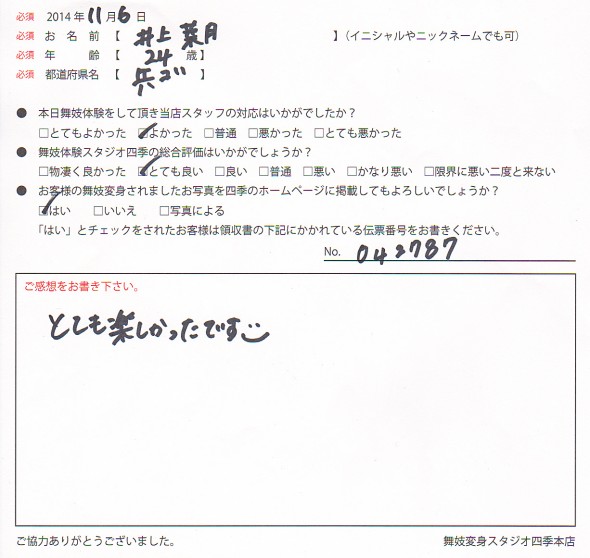 必須 2014年11月6日
必須 お名前【 井上 菜月 】(イニシャルやニックネームでも可)
必須 年齢【 24 歳】
必須 都道府県名【 兵ゴ 】
● 本日舞妓体験をして頂き当店スタッフの対応はいかがでしたか？
□とてもよかった ☑よかった □普通 □悪かった □とても悪かった
● 舞妓体験スタジオ四季の総合評価はいかがでしょうか？
□物凄く良かった ☑とても良い □良い □普通 □悪い □かなり悪い □限界に悪い二度と来ない
● お客様の舞妓変身されましたお写真を四季のホームページに掲載してもよろしいでしょうか？
☑はい □いいえ □写真による
「はい」とチェックをされたお客様は領収書の下記にかかれている伝票番号をお書きください。
No. 042787
ご感想をお書き下さい。
とても楽しかったです
ご協力ありがとうございました。
舞妓変身スタジオ四季本店